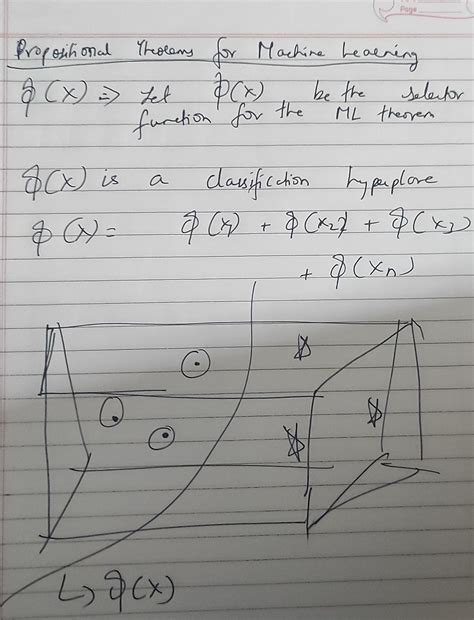 Page
Propositional Theorems for Machine Learning
φ(X) ⇒ Let φ(X) be the selector
function for the ML theorem
φ(X) is a classification hyperplane
φ(X) = φ(X1) + φ(X2) + φ(X3)
+ φ(Xn)
↳ φ(X)